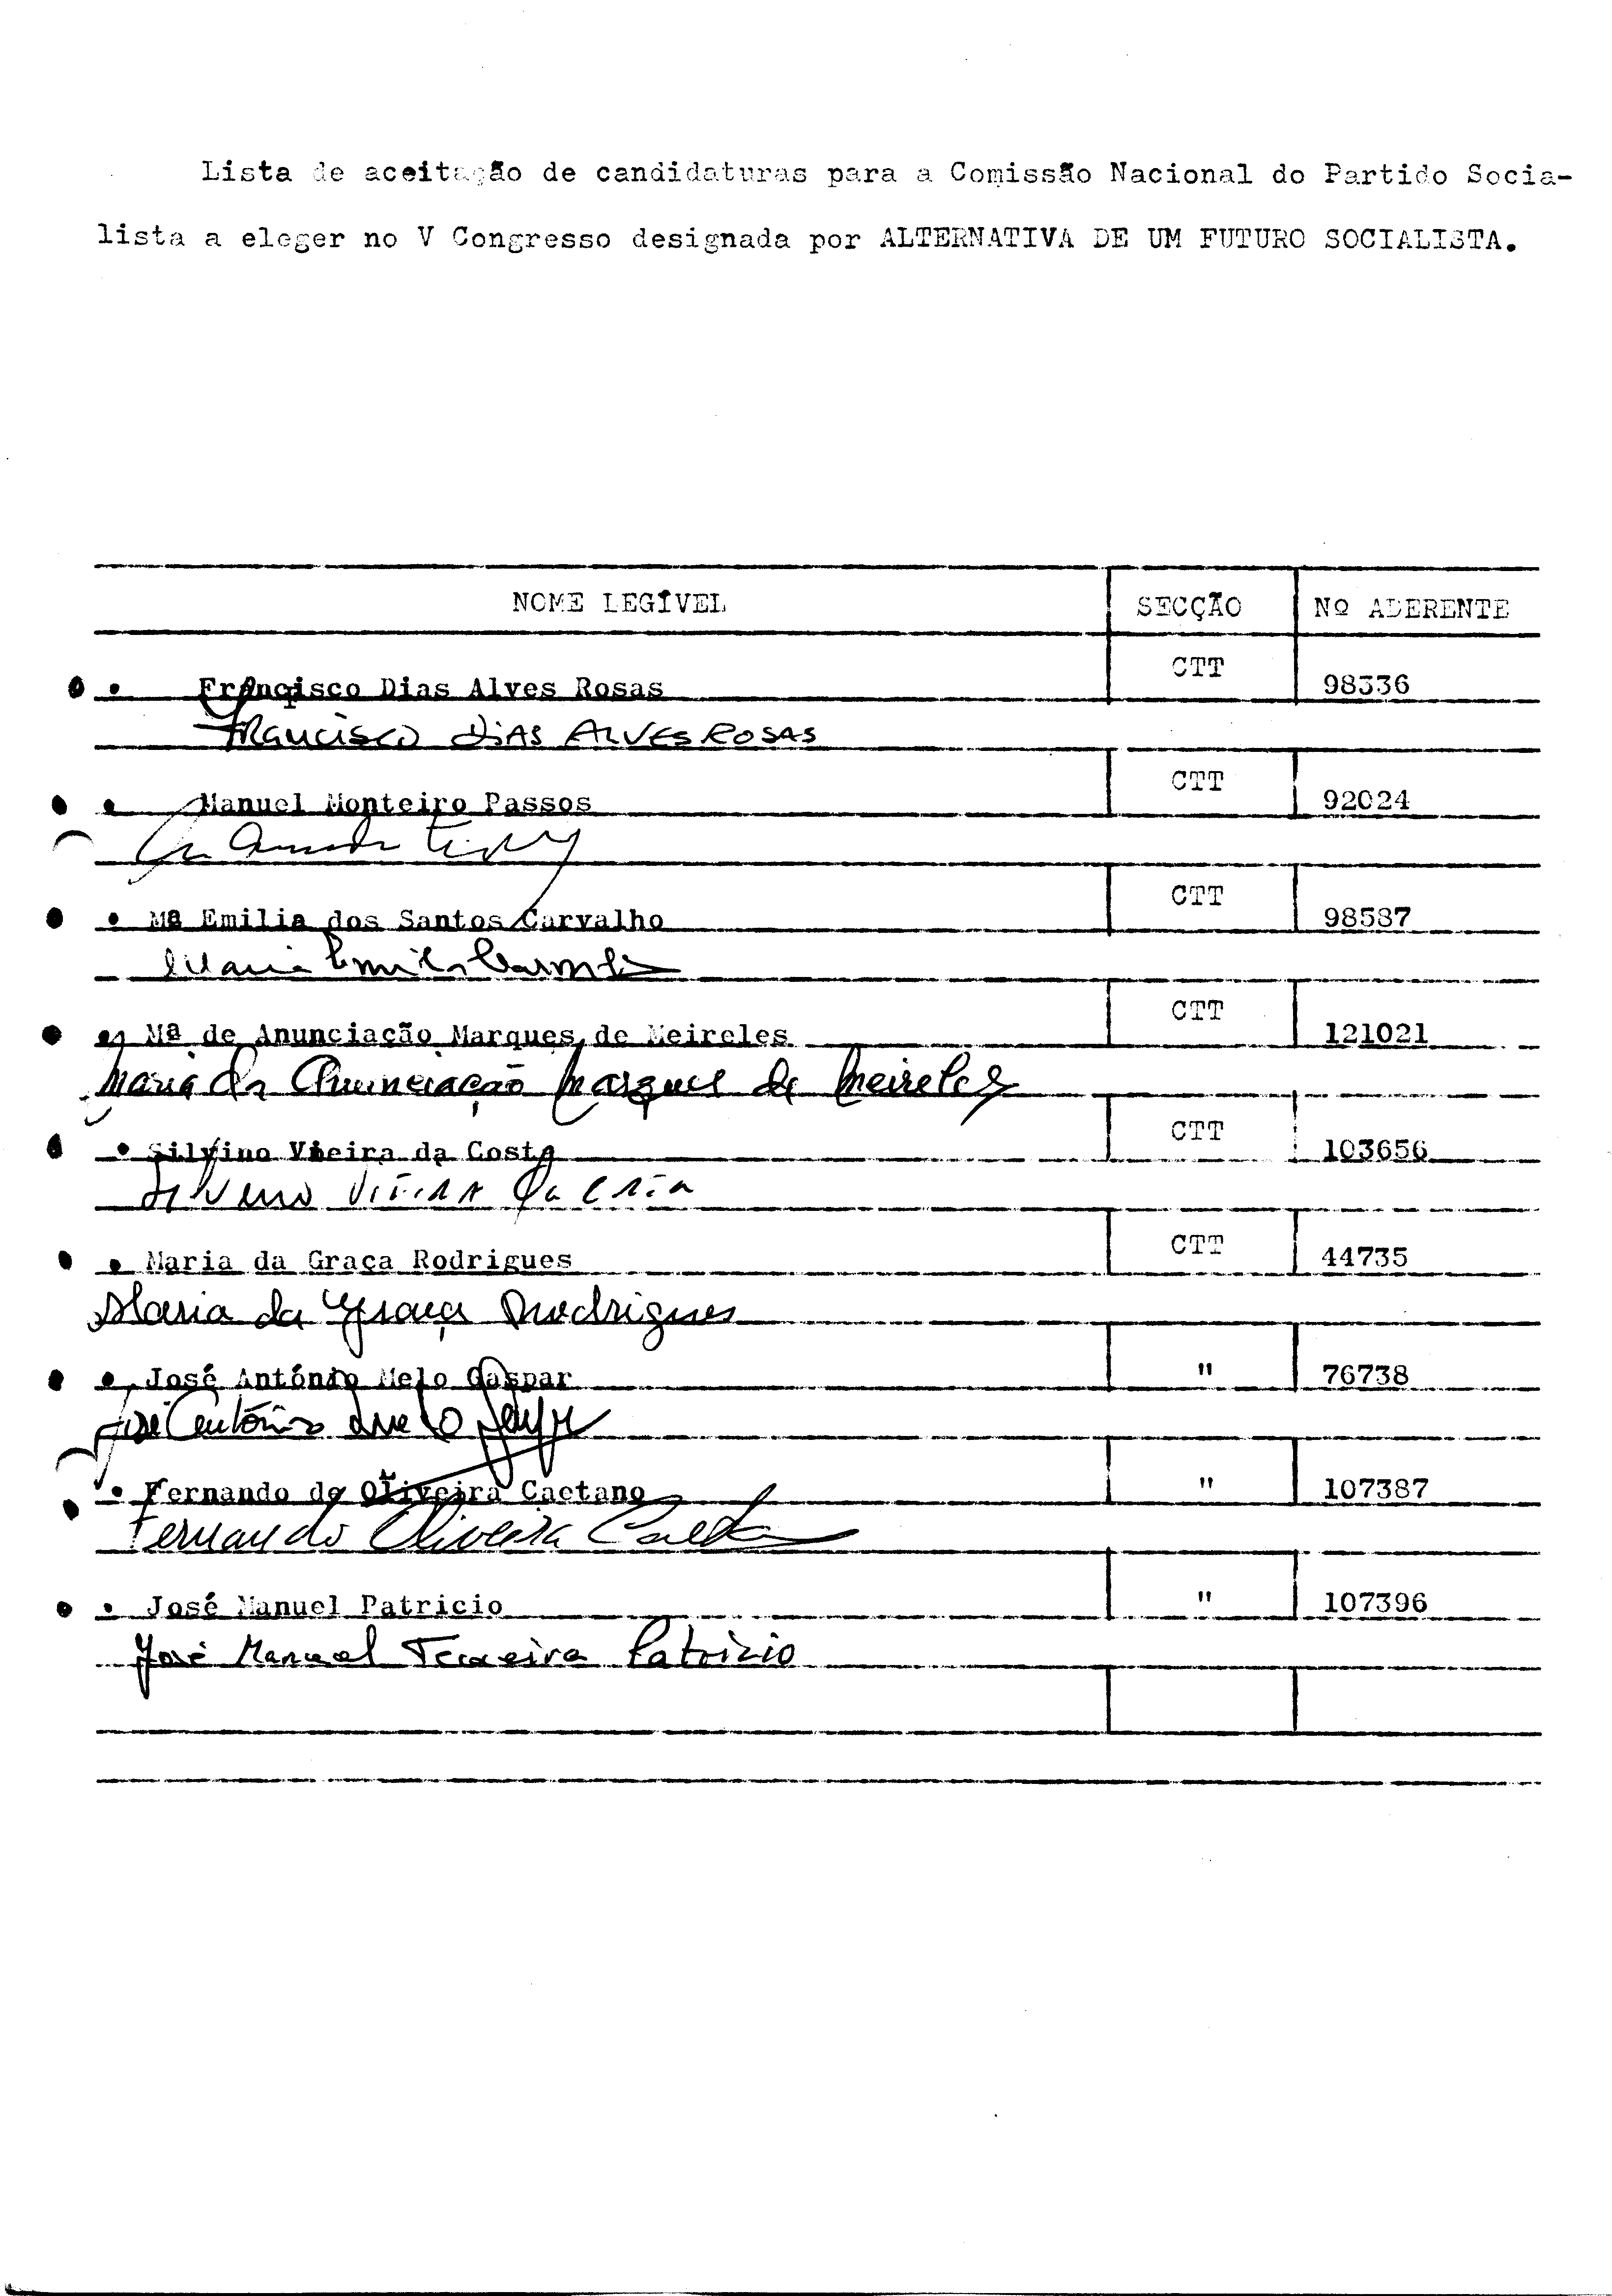 Lista de aceitação de candidaturas para a Comissão Nacional do Partido Socia-
lista a eleger no V Congresso designada por ALTERNATIVA DE UM FUTURO SOCIALISTA.
NOME LEGÍVEL SECÇÃO Nº ADERENTE
Francisco Dias Alves Rosas CTT 98336
FRANCISCO DIAS ALVES ROSAS
Manuel Monteiro Passos CTT 92024
Mª Emilia dos Santos Carvalho CTT 98587
Maria Emilia Carvalho
Mª de Anunciação Marques de Meireles CTT 121021
Maria da Anunciação Marques de Meireles
Silvino Vieira da Costa CTT 103656
Silvino Vieira da Costa
Maria da Graça Rodrigues CTT 44735
Maria da Graça Rodrigues
José António Melo Gaspar " 76738
José António Melo Gaspar
Fernando de Oliveira Caetano " 107387
Fernando Oliveira Caetano
José Manuel Patricio " 107396
José Manuel Teixeira Patrizio